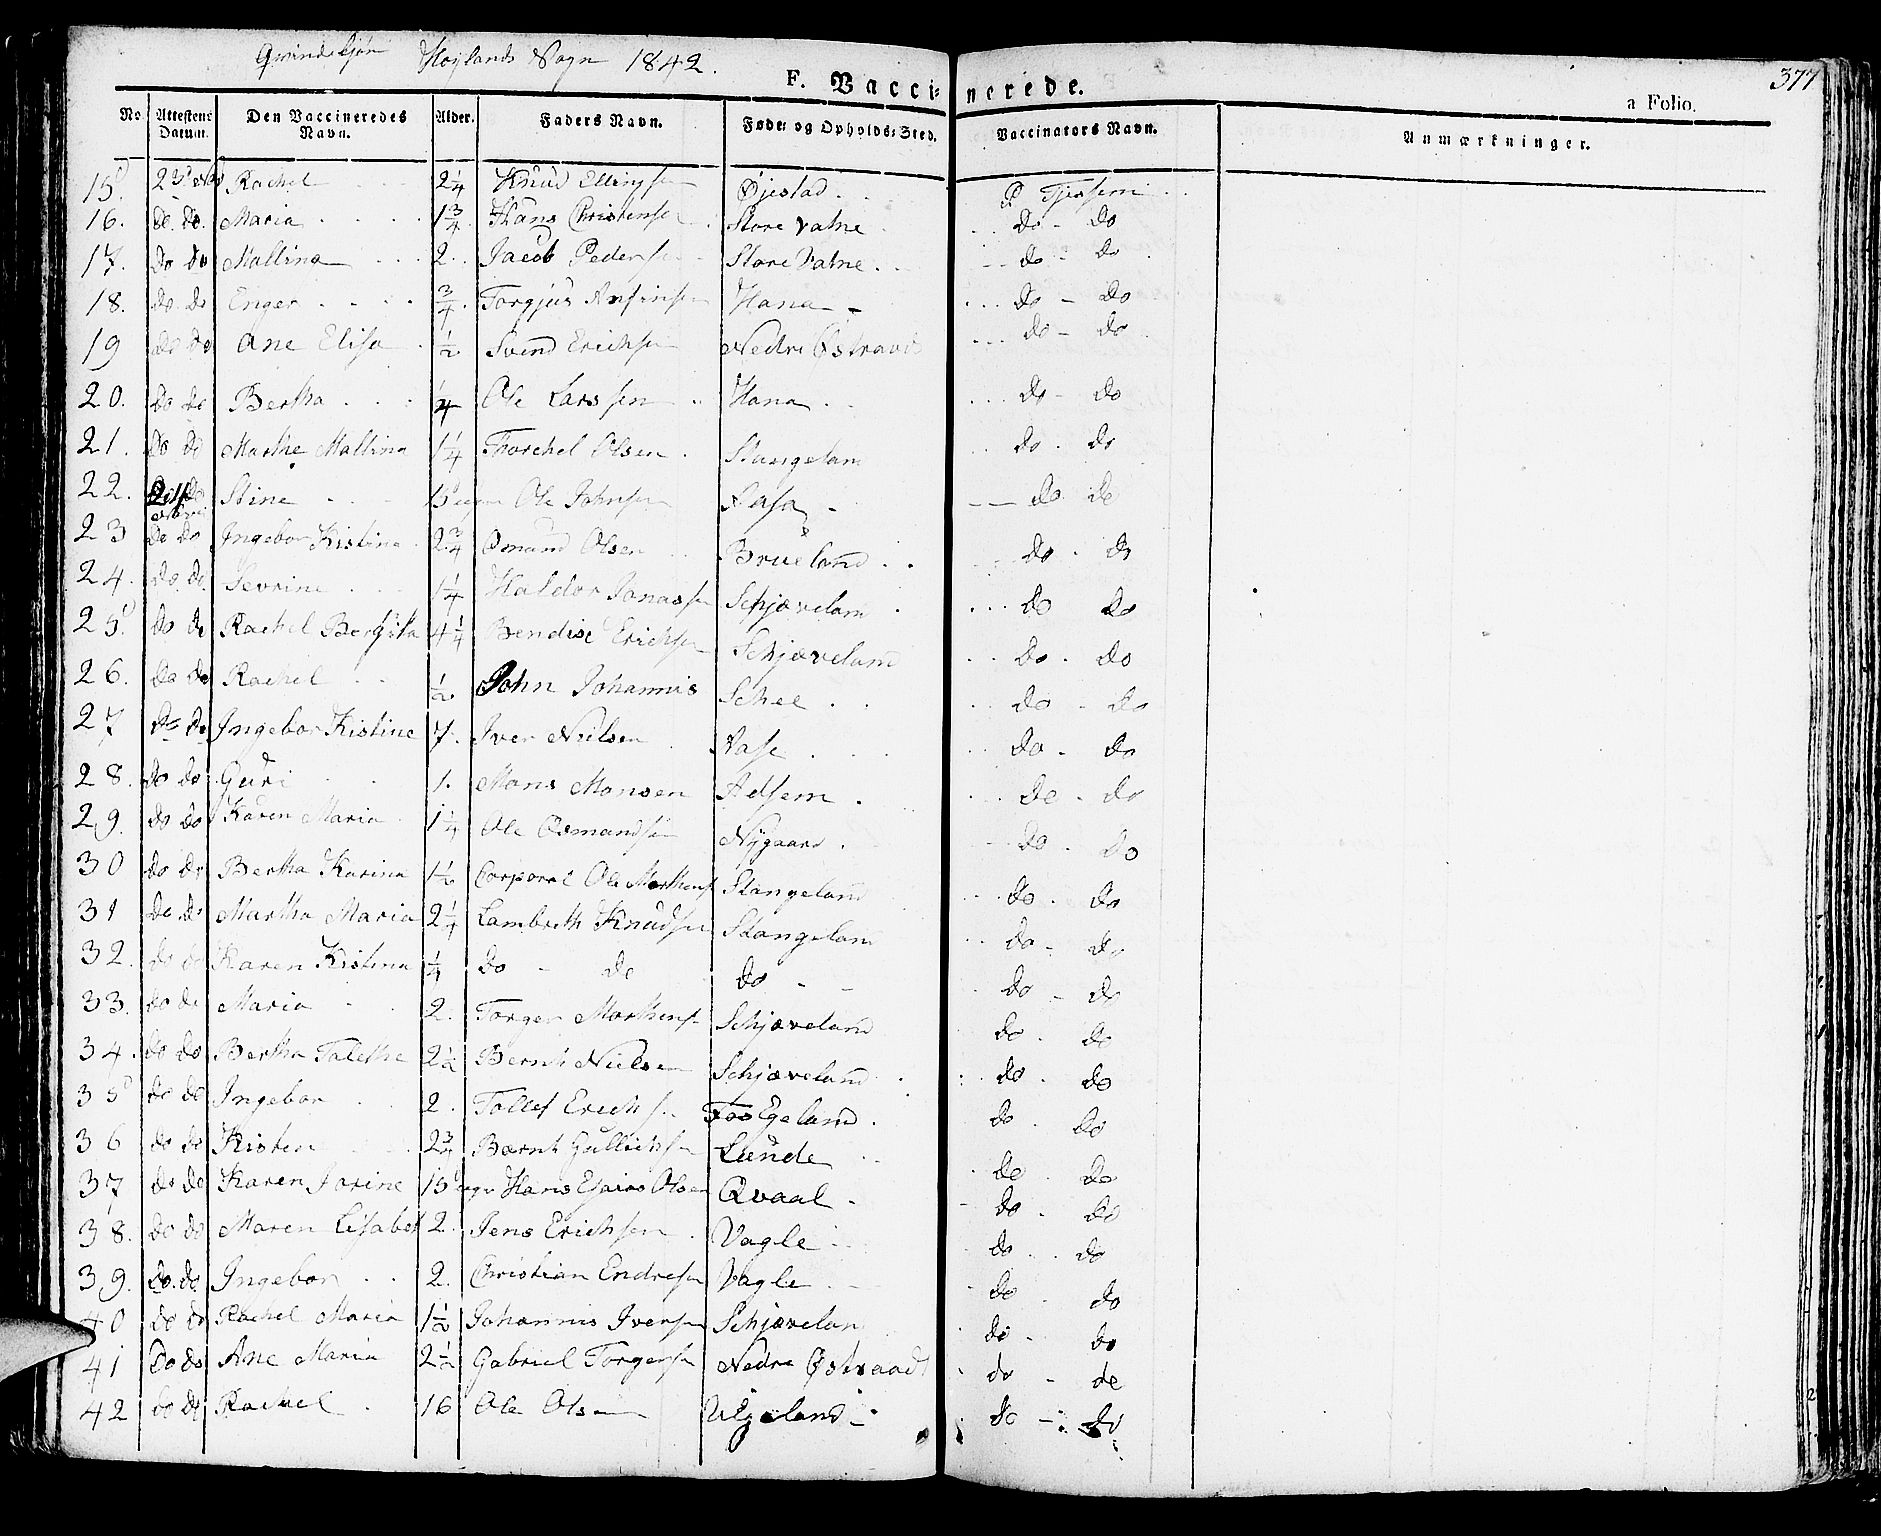 Qvindekjøn Høylands Sogn 1842.
377
F. Vaccinerede.
a Folio.
No. Attestens Datum. Den Vaccineredes Navn. Alder. Faders Navn. Føde- og Opholds-Sted. Vaccinators Navn. Anmærkninger.
15. 23 Rachel 2 1/4 Knud Ellingsen Øjestad. P. Tjessem
16. do. do. Maria 1 3/4 Hans Christensen Store Vatne do - do
17. do do Mallina 2. Jacob Pedersen Store Vatne. do - do
18. do. do Enger 3/4. Torgjus Anfinsen Hana - do - do
19 do do Ane Elisa 1/2 Svend Erichsen Nedre Østraad do - do
20. do do Bertha 1/4 Ole Larssen Hana do - do
21. do do Marthe Mallina 1 1/4 Thorchel Olsen Stangelan do. do
22. do Stine 15 Ole Johnsen Aasa - do. do
23 do do Ingebor Kistine 2 3/4 Osmund Olsen Brueland do. do
24. do. do. Sevrine 1 1/4 Haldor Jonassen Schjævelan do do
25. do do Rachel Bergita 4 1/4 Bendix Erichsen Schjæveland do. do
26. do do Rachel 1/2 John Johannis Schee do - do
27 do do Ingebor Kistine 7. Iver Nielsen Aase do - do
28. do do Guri 1. Mons Monsen Adsem do - do
29. do do Karen Maria 1 1/4 Ole Osmundsen Nÿgaard do. do
30 do do Bertha Karina 1 1/2 Corporal Ole Morthens Stangeland do. do
31 do do Martha Maria 2 1/4 Lambreth Knudsen Stangelan do - do
32. do do Karen Kistina 1/4 do - do do - do - do
33. do do Maria 2. Torger Morthens Schjæveland do. do
34. do do Bertha Talethe 2 1/2 Bernt Nielsen Schjæveland do. do
35 do do Ingebor 2. Tollef Erichs Fos Egeland. do. do
36 do do Kisten 2 3/4 Bærnt Gullichsen Lunde do. do
37 do do Karen Jorine 15 Hans Esaias Olsen Qvaal - do. do
38. do do Maren Lisabet 2. Jens Erichsen Vagle do. do
39. do. do Ingebor 2. Christian Endresen Vagle do. do
40 do do Rachel Maria 1 1/2 Johannis Iversen Schjævelan do - do
41 do do Ane Maria 2 1/2 Gabriel Torgersen Nedre Østraad do - do
42 do do Rachel 16 Ole Olsen Ulgeland - do - do